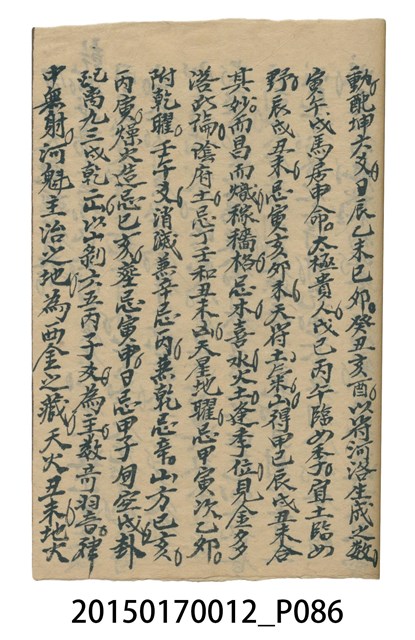 動配坤六爻日辰乙未巳卯癸丑亥酉以符河洛生成之數
寅午戌馬居申命太極貴人戊己丙午臨如季宜土臨如
野辰戌丑未忌寅亥卯未天符土宿山得甲己辰戌丑未合
其妙而昌而熾稼穡格忌木喜水火土逢季位見金多多
洛此論陰府土忌丁壬和丑未凶天星地曜忌甲寅次乙卯
附乾曜壬午爻消滅兼辛忌丙兼乾忌辛山方巳亥
丙寅燥火造忌巳亥塟忌寅申日忌甲子旬空戌卦
配离九三戌乾正以山剝六五丙子爻為主數奇羽音律
中無射河魁主治之地為西金之藏天火丑未地火
20150170012_P086